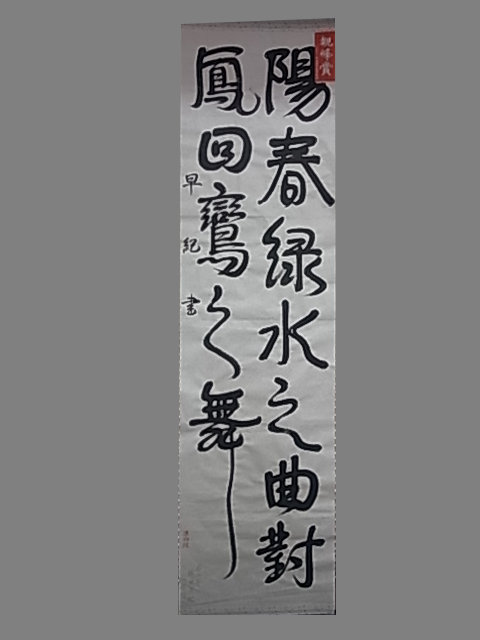 陽春緑水之曲對
鳳回鸞之舞
早紀書
観峰賞